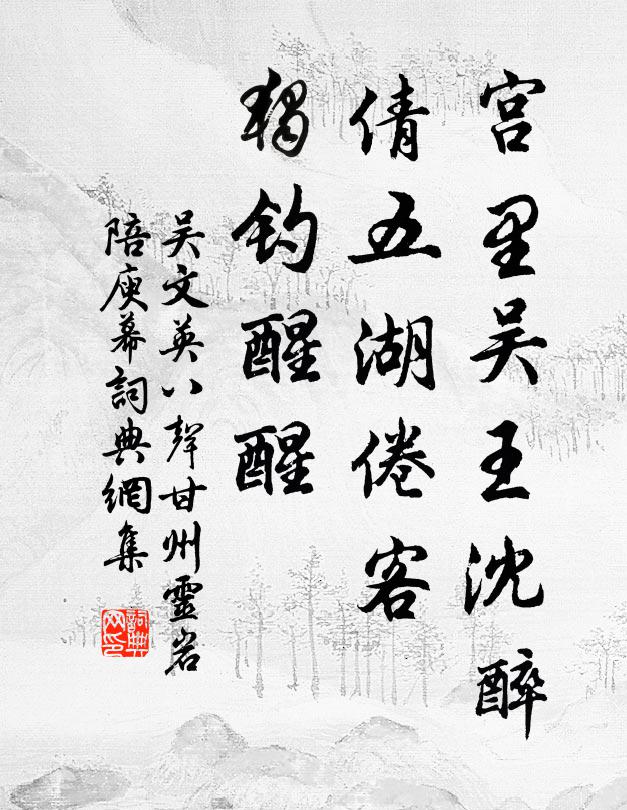 宫里吴王沈醉
倩五湖倦客
独钓醒醒
吴文英八聲甘州靈岩
陪庾幕詞典網集
詞典网印